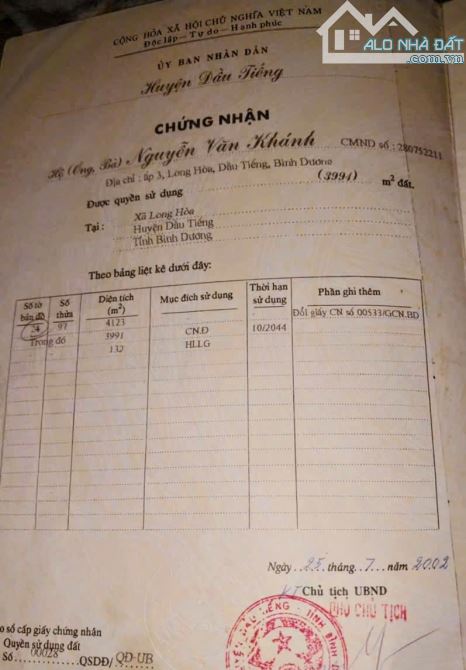 ALO NHÀ ĐẤT
.com.vn
CỘNG HÒA XÃ HỘI CHỦ NGHĨA VIỆT NAM
Độc lập - Tự do - Hạnh phúc
ỦY BAN NHÂN DÂN
Huyện Dầu Tiếng
CHỨNG NHẬN
Hộ (Ông, Bà) Nguyễn Văn Khánh CMND số : 280752211
Địa chỉ : ấp 3, Long Hòa, Dầu Tiếng, Bình Dương
Được quyền sử dụng (3991) m² đất.
Tại : Xã Long Hòa
Huyện Dầu Tiếng
Tỉnh Bình Dương
Theo bảng liệt kê dưới đây:
Số tờ bản đồ Số thửa Diện tích (m²) Mục đích sử dụng Thời hạn sử dụng Phần ghi thêm
24 97 4123 Đổi giấy CN số 00533/GCN.BD
Trong đó 3991 CN.Đ 10/2044
132 HLLG
Ngày 25 tháng 7 năm 2002
KT Chủ tịch UBND
PHÓ CHỦ TỊCH
o sổ cấp giấy chứng nhận
Quyền sử dụng đất
Số 00028 QSDĐ/ QĐ-UB